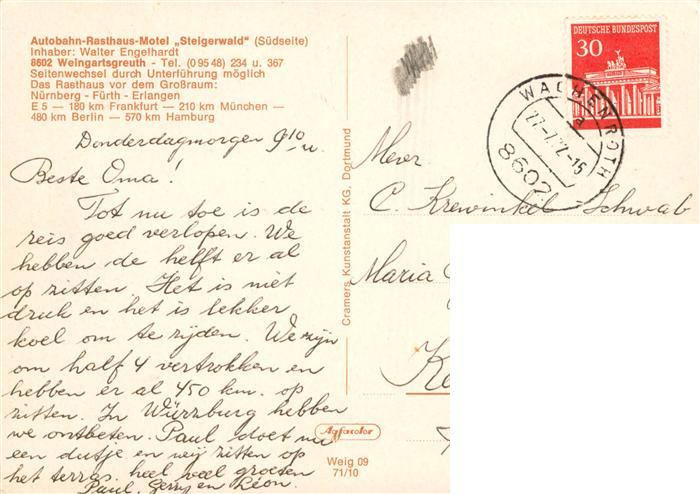 Autobahn-Rasthaus-Motel „Steigerwald“ (Südseite)
Inhaber: Walter Engelhardt
8602 Weingartsgreuth - Tel. (0 95 48) 234 u. 367
Seitenwechsel durch Unterführung möglich
Das Rasthaus vor dem Großraum:
Nürnberg - Fürth - Erlangen
E 5 — 180 km Frankfurt — 210 km München —
480 km Berlin — 570 km Hamburg
Donderdagmorgen 9 10 u.
Beste Oma!
Tot nu toe is de
reis goed verlopen. We
hebben de helft er al
op zitten. Het is niet
druk en het is lekker
koel om te rijden. We zijn
om half 4 vertrokken en
hebben er al 450 km. op
zitten. In Würzburg hebben
we ontbeten. Paul doet nu
een dutje en wij zitten op
het terras. heel veel groeten
Paul, Gerry en Léon.
Cramers Kunstanstalt KG, Dortmund
Agfacolor
Weig 09
71/10
DEUTSCHE BUNDESPOST
30
WACHENROTH
a
27.-7.72-15
8602
Mevr.
C. Krewinkel-Schwab
Maria